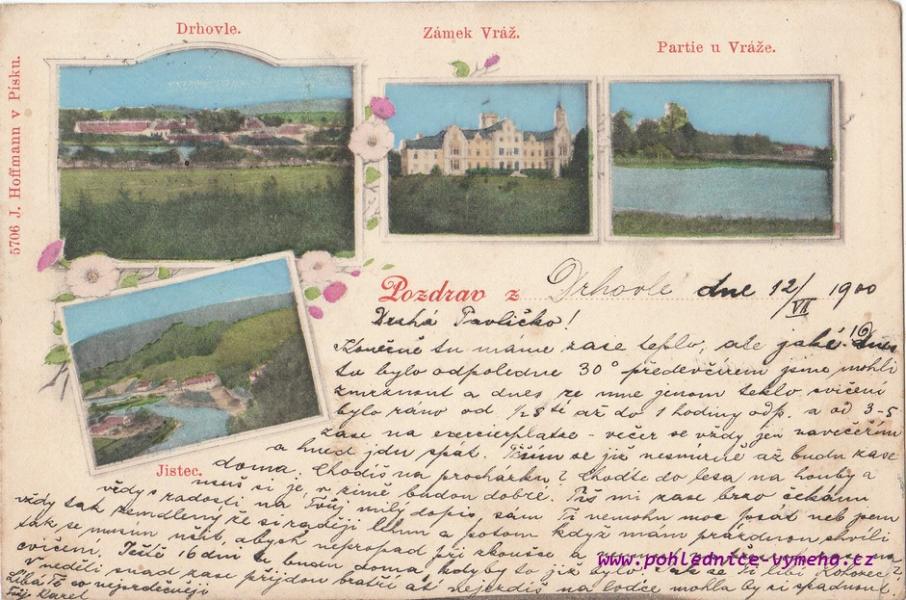 Drhovle.
Zámek Vráž.
Partie u Vráže.
5706 J. Hoffmann v Písku.
Pozdrav z Drhovlé dne 12/VII 1900
Drahá Pavličko!
Konečně tu máme zase teplo, ale jaké! Dnes
tu bylo odpoledne 30° předevčírem jsme mohli
zmrznout a dnes ze mne jenom teklo, cvičení
bylo ráno od 1/25 ti až do 1 hodiny odp. a od 3-5
zase na exercierplatze - večer se vždy jen navečeřím
a hned jdu spát. Těším se již nesmírně až budu zase
Jistec.
doma. Chodíš na procházku? Choďte do lesa na houby a
nasuš si je, v zimě budou dobré. Piš mi zase brzo čekám
vždy s radostí na Tvůj milý dopis, sám Ti nemohu moc psát neb jsem
vždy tak zemdlený že si raději lehnu a potom když mám prázdnou chvíli
tak se musím učit, abych nepropad při zkoušce a
cvičení. Ještě 16 dní budu doma, kdyby to již bylo. Jak se Ti líbí
V neděli snad zase přijdou bratři ať nejezdíš na loďce mohla by si spadnout.
Líbá Tě co nejsrdečněji
Tvůj Karel
www.pohlednice-vymena.cz